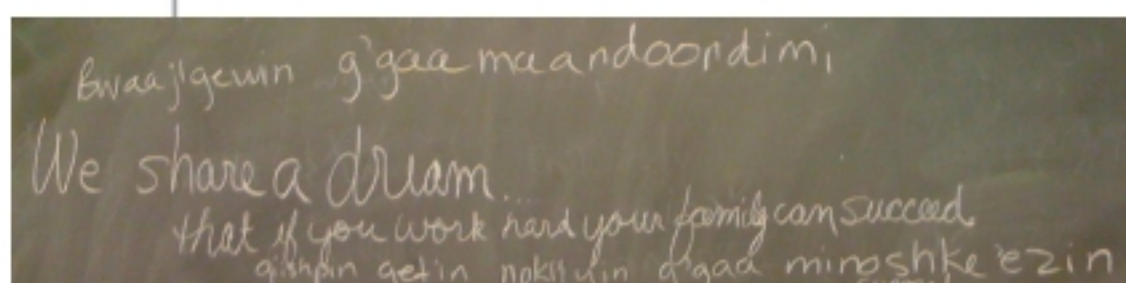 Bwaaj'gewin g'gaa maandoondimi
We share a dream...
that if you work hard your family can succeed
giishpin aet'in nokiiyin g'gaa minoshke'ezin